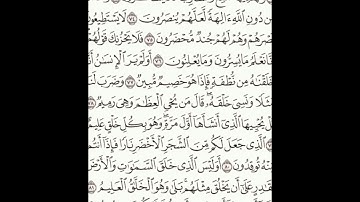 مِن دُونِ ٱللَّهِ ءَالِهَةً لَّعَلَّهُمْ يُنصَرُونَ ٧٤ لَا يَسْتَطِيعُونَ
نَصْرَهُمْ وَهُمْ لَهُمْ جُندٌ مُّحْضَرُونَ ٧٥ فَلَا يَحْزُنكَ قَوْلُهُمْ
إِنَّا نَعْلَمُ مَا يُسِرُّونَ وَمَا يُعْلِنُونَ ٧٦ أَوَلَمْ يَرَ ٱلْإِنسَٰنُ أَنَّا
خَلَقْنَٰهُ مِن نُّطْفَةٍ فَإِذَا هُوَ خَصِيمٌ مُّبِينٌ ٧٧ وَضَرَبَ لَنَا
مَثَلًا وَنَسِىَ خَلْقَهُۥ قَالَ مَن يُحْىِ ٱلْعِظَٰمَ وَهِىَ رَمِيمٌ ٧٨
قُلْ يُحْيِيهَا ٱلَّذِىٓ أَنشَأَهَآ أَوَّلَ مَرَّةٍ وَهُوَ بِكُلِّ خَلْقٍ عَلِيمٌ
ٱلَّذِى جَعَلَ لَكُم مِّنَ ٱلشَّجَرِ ٱلْأَخْضَرِ نَارًا فَإِذَآ أَنتُم
مِّنْهُ تُوقِدُونَ ٨٠ أَوَلَيْسَ ٱلَّذِى خَلَقَ ٱلسَّمَٰوَٰتِ وَٱلْأَرْضَ
بِقَٰدِرٍ عَلَىٰٓ أَن يَخْلُقَ مِثْلَهُم بَلَىٰ وَهُوَ ٱلْخَلَّٰقُ ٱلْعَلِيمُ ٨١